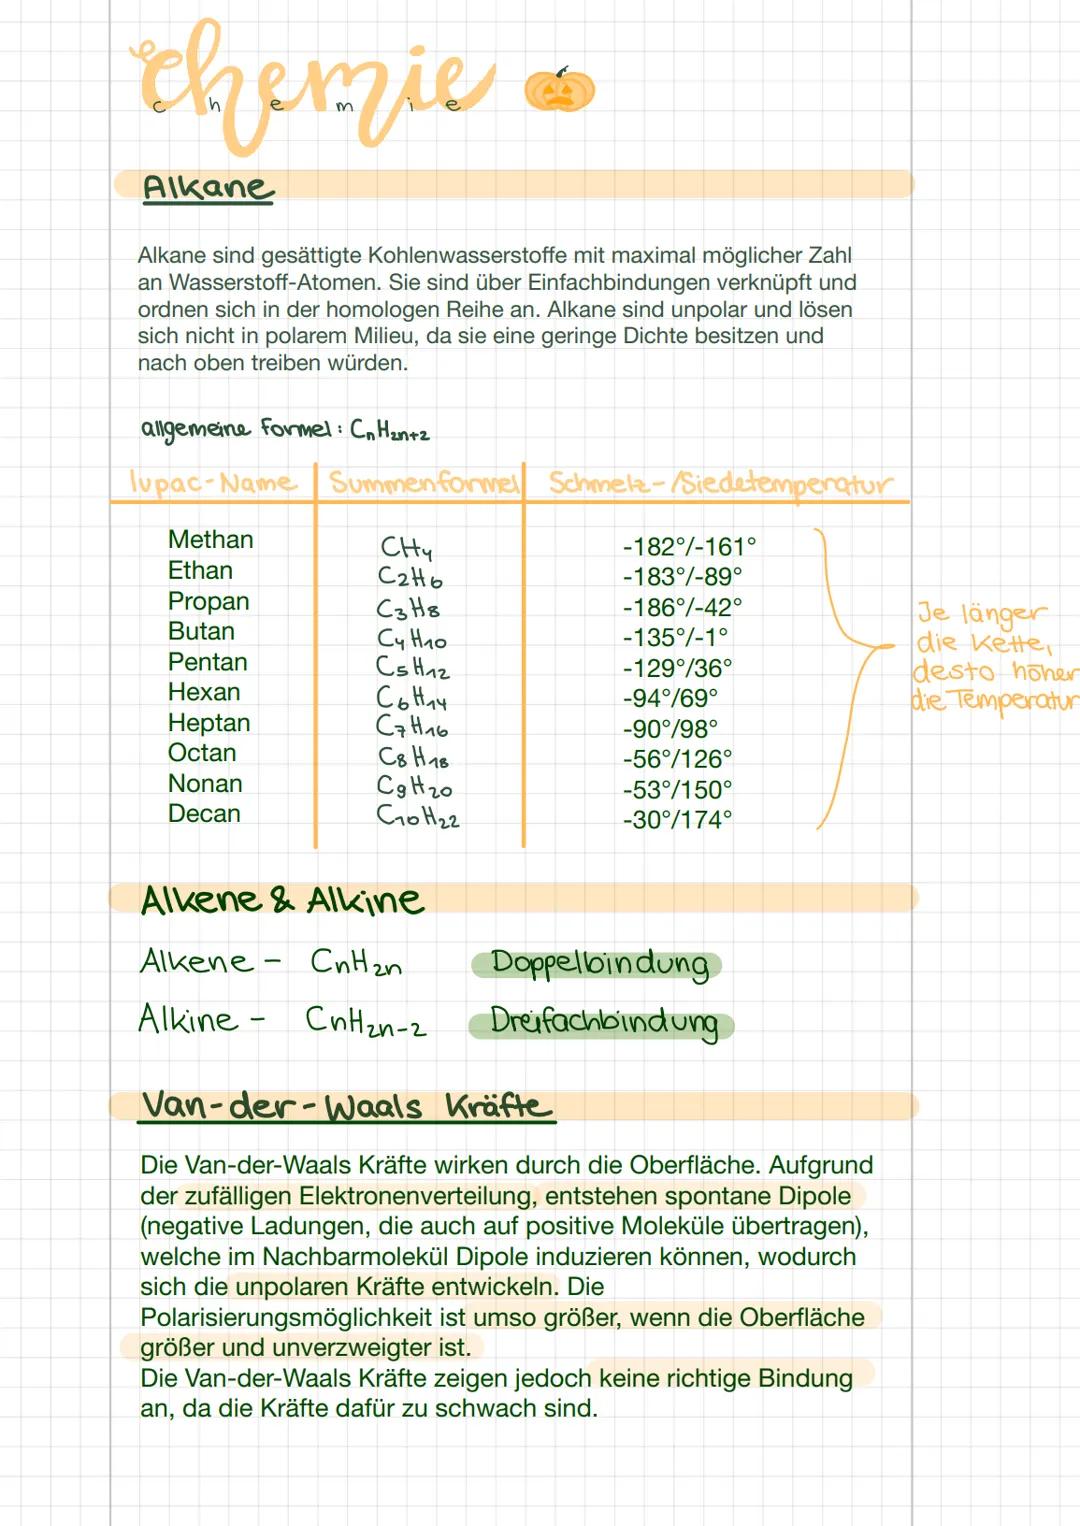 chemie
c h e m i e
Alkane
Alkane sind gesättigte Kohlenwasserstoffe mit maximal möglicher Zahl
an Wasserstoff-Atomen. Sie sind über Einfachbindungen verknüpft und
ordnen sich in der homologen Reihe an. Alkane sind unpolar und lösen
sich nicht in polarem Milieu, da sie eine geringe Dichte besitzen und
nach oben treiben würden.
allgemeine Formel: CnH2n+2
Iupac-Name Summenformel Schmelz-/Siedetemperatur
Methan CH4 -182°/-161°
Ethan C2H6 -183°/-89°
Propan C3H8 -186°/-42°
Butan C4H10 -135°/-1°
Pentan C5H12 -129°/36°
Hexan C6H14 -94°/69°
Heptan C7H16 -90°/98°
Octan C8H18 -56°/126°
Nonan C9H20 -53°/150°
Decan C10H22 -30°/174°
Je länger
die Kette,
desto höher
die Temperatur
Alkene & Alkine
Alkene - CnH2n Doppelbindung
Alkine - CnH2n-2 Dreifachbindung
Van-der-Waals Kräfte
Die Van-der-Waals Kräfte wirken durch die Oberfläche. Aufgrund
der zufälligen Elektronenverteilung, entstehen spontane Dipole
(negative Ladungen, die auch auf positive Moleküle übertragen),
welche im Nachbarmolekül Dipole induzieren können, wodurch
sich die unpolaren Kräfte entwickeln. Die
Polarisierungsmöglichkeit ist umso größer, wenn die Oberfläche
größer und unverzweigter ist.
Die Van-der-Waals Kräfte zeigen jedoch keine richtige Bindung
an, da die Kräfte dafür zu schwach sind.